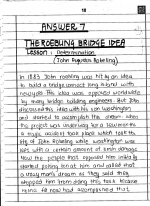 18
ANSWER 7
THE ROEBLING BRIDGE IDEA
Lesson : Determination
(John Augustus Roebling)
In 1883 John roebling was hit by an idea
to build a bridge connect long island with
newyork. The idea was opposed worldwide
by many bridge building engineers. But John
discussed his idea with his son washington
and started to accomplish the dream. when
the project was underway for a few months
a tragic accident took place which took the
life of John Roebling while washington was
left with a certain amount of brain damage.
Now the people that opposed him initially
started poking fun at him and called that
a crazy man's dream as they said they
stopped him from doing this task because